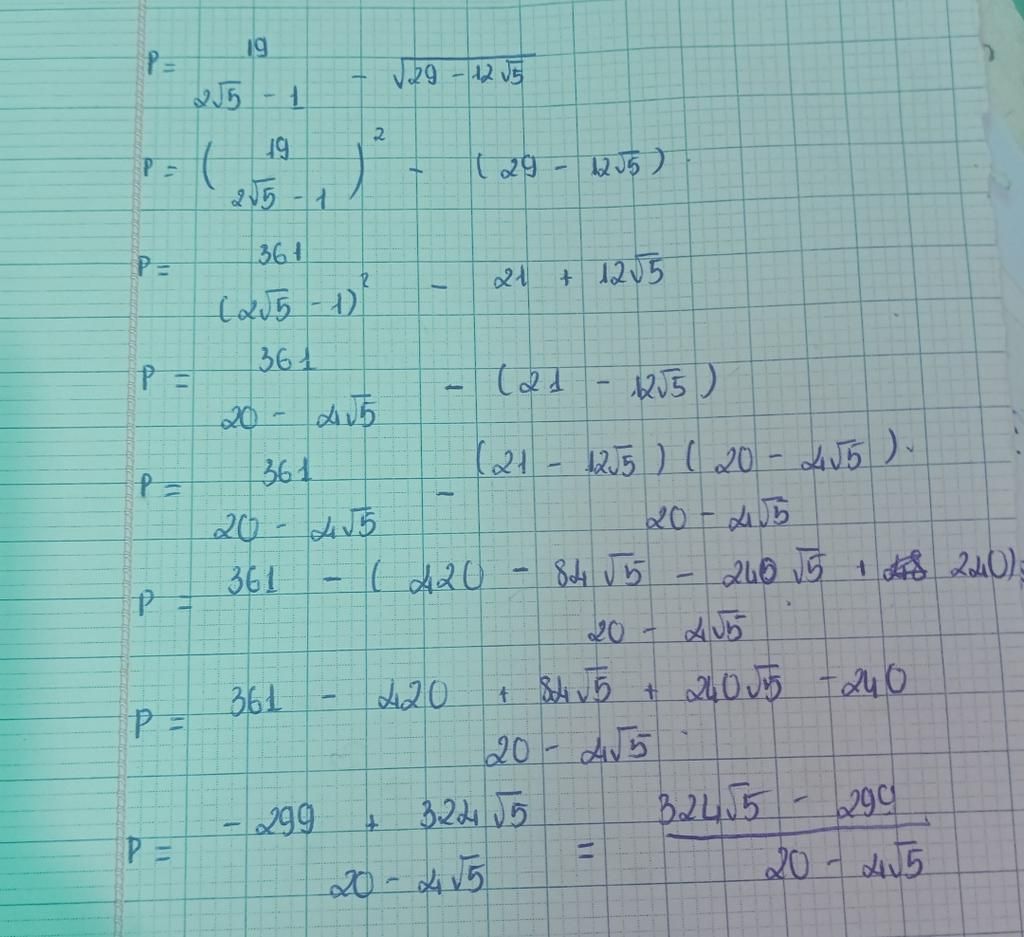 P = 19 / 2√5 - 1 - √29 - 12√5
P = ( 19 / 2√5 - 1 )² - ( 29 - 12√5 )
P = 361 / (2√5 - 1)² - 21 + 12√5
P = 361 / 20 - 4√5 - (21 - 12√5)
P = 361 / 20 - 4√5 - (21 - 12√5) (20 - 4√5) / 20 - 4√5
P = 361 - (420 - 84√5 - 240√5 + 240) / 20 - 4√5
P = 361 - 420 + 84√5 + 240√5 - 240 / 20 - 4√5
P = - 299 + 324√5 / 20 - 4√5 = 324√5 - 299 / 20 - 4√5